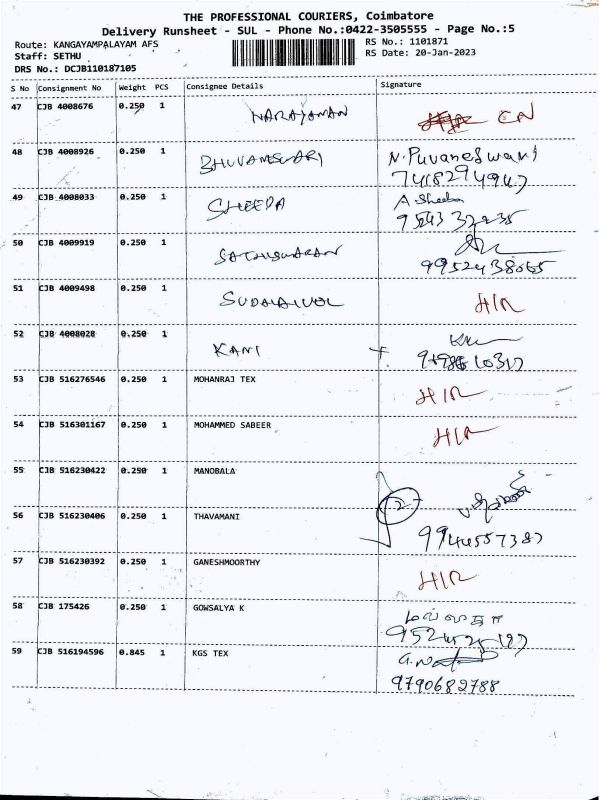 THE PROFESSIONAL COURIERS, Coimbatore
Delivery Runsheet - SUL - Phone No.:0422-3505555 - Page No.:5
Route: KANGAYAMPALAYAM AFS
RS No.: 1101871
Staff: SETHU
RS Date: 20-Jan-2023
DRS No.: DCJB110187105
S No Consignment No Weight PCS Consignee Details Signature
47 CJB 4008676 0.250 1 NARAYANAN
48 CJB 4008926 0.250 1 BHUVANESWARI N. Puvaneswari
7418294947
49 CJB 4008033 0.250 1 SHEEPA A Sheeba
50 CJB 4009919 0.250 1
51 CJB 4009498 0.250 1 H/R
52 CJB 4008028 0.250 1 KANI
53 CJB 516276546 0.250 1 MOHANRAJ TEX H/R
54 CJB 516301167 0.250 1 MOHAMMED SABEER H/R
55 CJB 516230422 0.250 1 MANOBALA
56 CJB 516230406 0.250 1 THAVAMANI 2
9944557387
57 CJB 516230392 0.250 1 GANESHMOORTHY H/R
58 CJB 175426 0.250 1 GOWSALYA K
59 CJB 516194596 0.845 1 KGS TEX
9790682788